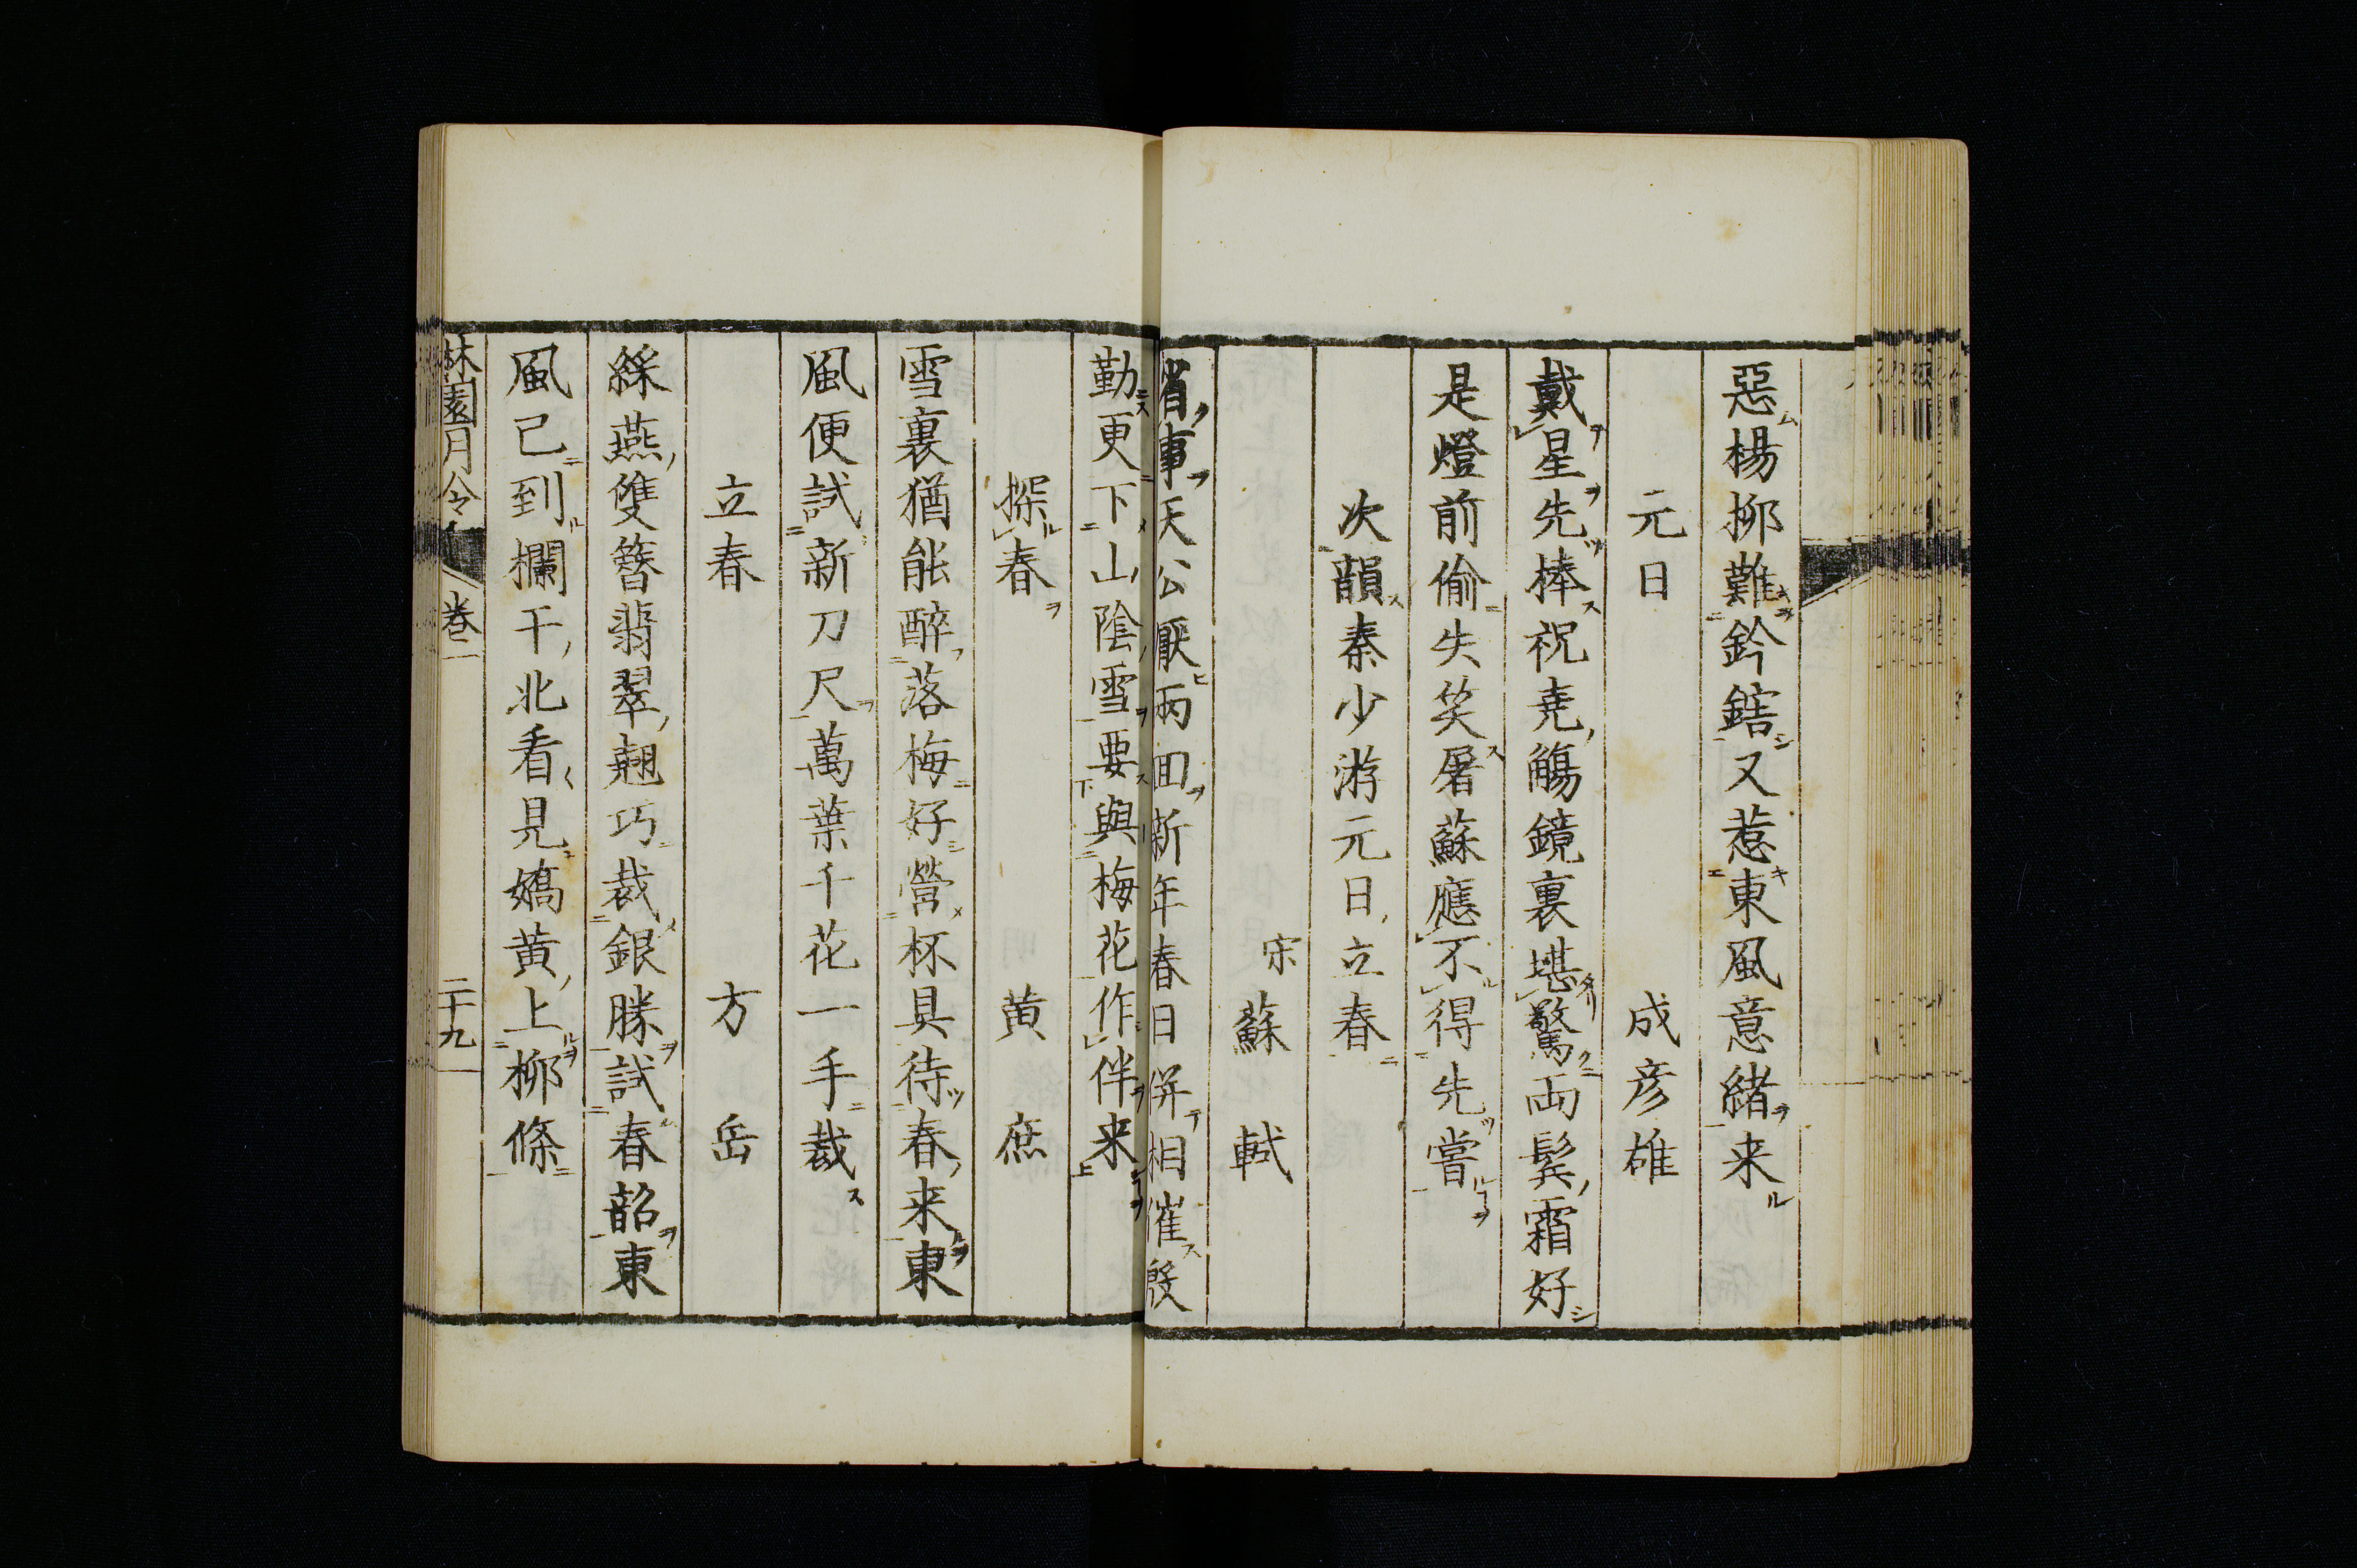 惡楊柳難鈐鎋又惹東風意緒来
元日 成彦雄
戴星先捧祝堯觴鏡裏堪驚両鬂霜好
是燈前偷失笑屠蘇應不得先嘗
次韻秦少游元日立春
宋蘇軾
省事天公厭両回新年春日併相催殷
勤更下山陰雪要與梅花作伴来
探春 黄庶
雪裏猶能醉落梅好營杯具待春来東
風便試新刀尺萬葉千花一手裁
立春 方岳
綵燕雙簪翡翠翹巧裁銀勝試春韶東
風已到欄干北看看見嬌黄上柳條
林園月令 卷一 二十九